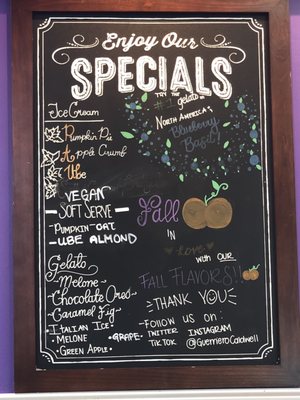 Enjoy Our
SPECIALS
Ice Cream
Pumpkin Pie
Apple Crumb
Ube
VEGAN
SOFT SERVE
-PUMPKIN-OAT
-UBE ALMOND
Gelato
-Melone
-Chocolate Oreo
-Caramel Fig
•Italian Ice:
•MELONE
•GRAPE•
•Green Apple•
TRY THE
#1 gelato in
NORTH AMERICA'S
Blueberry
Basil!
Fall
IN
LOVE
with OUR
FALL FLAVORS!!
THANK YOU
-FOLLOW US ON:
TWITTER INSTAGRAM
TIKTOK @GuerrieroCaldwell